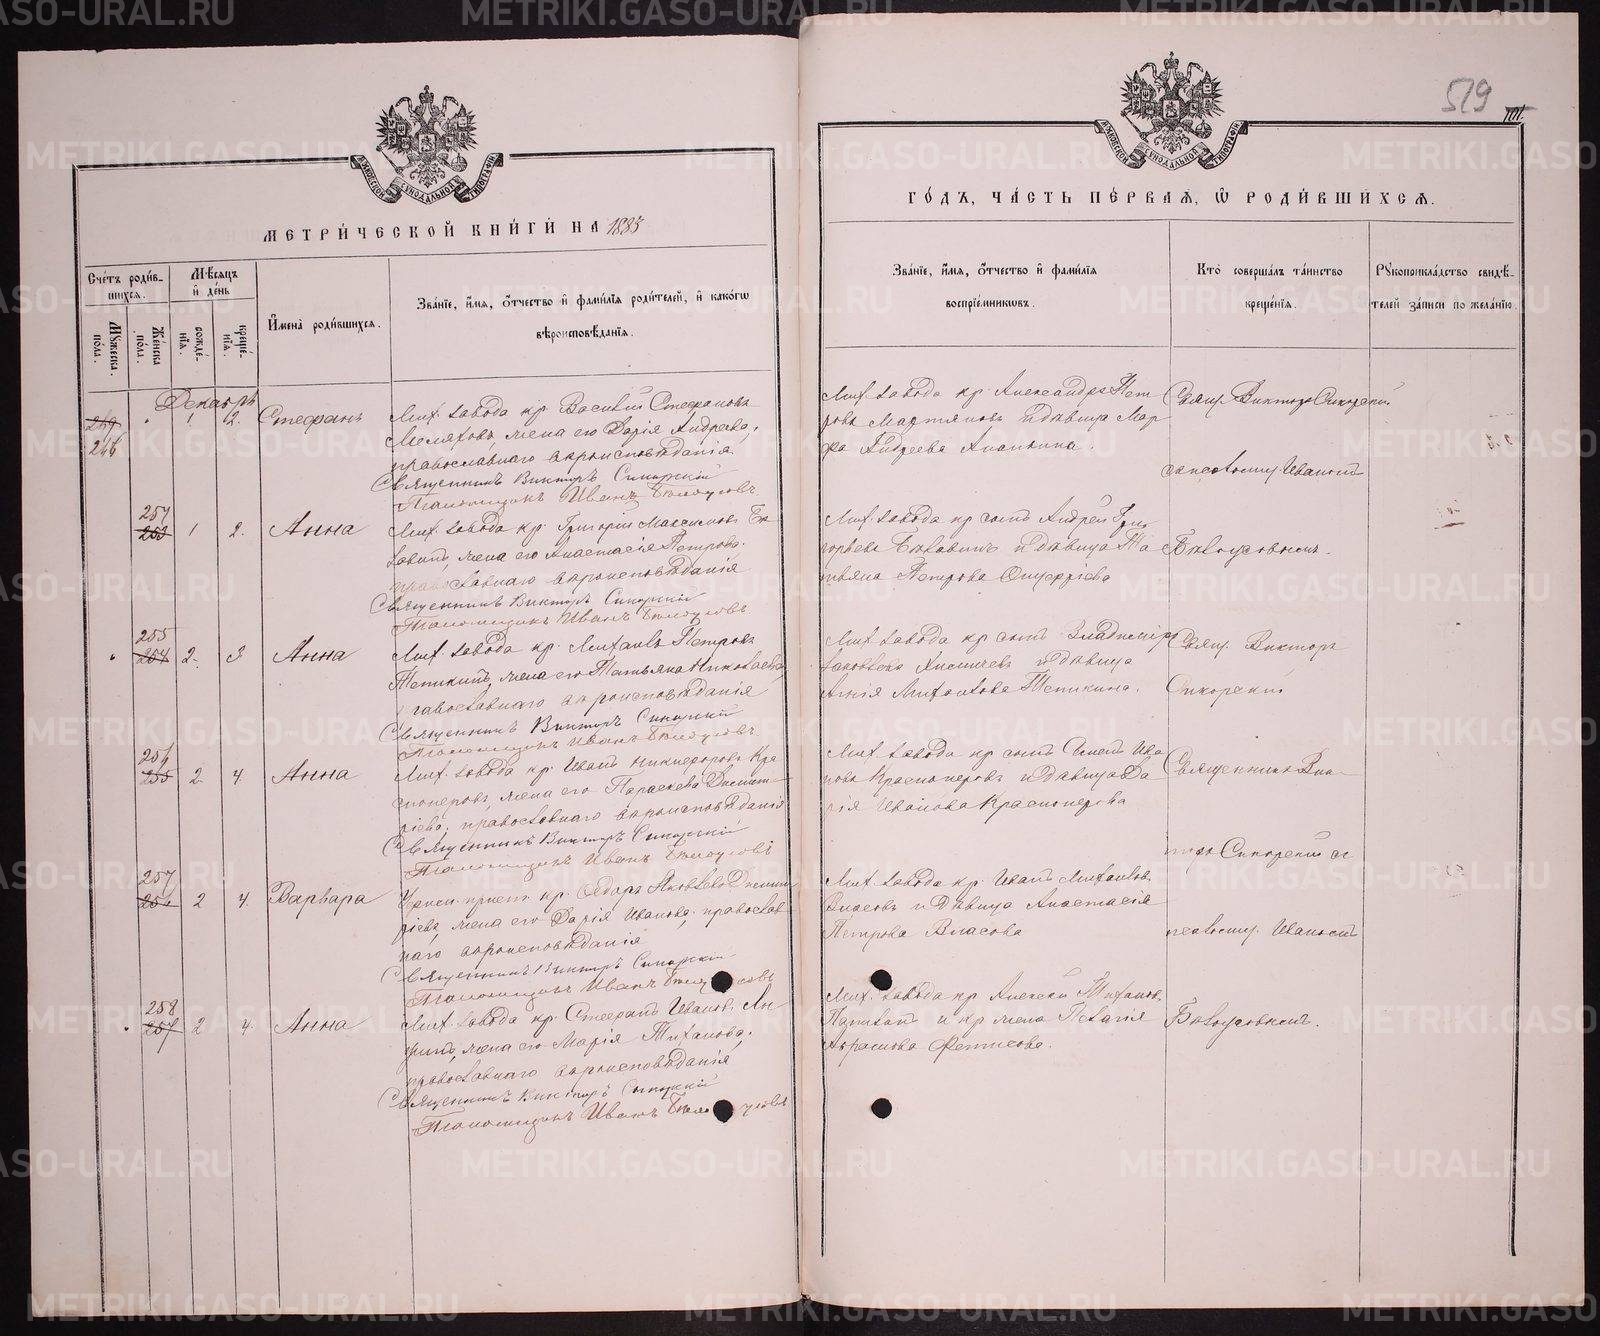 519
КІЕВСКОЙ СѴНОДАЛЬНОЙ ТИПОГРАФІИ
МЕТРИ́ЧЕСКОЙ КНИ́ГИ НА 1883
Сче́тъ роди́в-
шихсѧ.
Мѣ́сѧцъ
и҆ де́нь
Мꙋ́жеска
по́ла.
Же́нска
по́ла.
рожде́-
нїѧ.
креще́-
нїѧ.
И҆мена̀ роди́вшихсѧ.
Зва́нїе, и҆́мѧ, ѻ҆́тчество и҆ фами́лїѧ роди́телей, и҆ како́гѡ
вѣроисповѣ́данїѧ.
Декабрь
249
246
1
2.
Стефанъ
Мих. завода кр. Василій Стефановъ
жена его Дарія Андреева,
православнаго вѣроисповѣданія
Священникъ Викторъ Сикорскій
Псаломщикъ Иванъ Бѣлоусовъ.
254
253
1
2.
Анна
Мих. завода кр. Григорій Максимовъ
жена его Анастасія Петрова.
православнаго вѣроисповѣданія
Священникъ Викторъ Сикорскій
Псаломщикъ Иванъ Бѣлоусовъ
255
254
2.
3
Анна
Мих. завода кр. Михаилъ Петровъ
Тепикинъ, жена его Татьяна Николаева,
православнаго вѣроисповѣданія
Священникъ Викторъ Сикорскій
Псаломщикъ Иванъ Бѣлоусовъ.
256
255
2.
4.
Анна
Мих. завода кр. Иванъ Никифоровъ Кра-
сноперовъ, жена его Параскева Димит-
ріева, православнаго вѣроисповѣданія
Священникъ Викторъ Сикорскій
Псаломщикъ Иванъ Бѣлоусовъ
257
256
2
4.
Варвара
кр. Ѳедоръ Яковлевъ Димит
ріевъ, жена его Дарія Иванова, православ-
наго вѣроисповѣданія
Священникъ Викторъ Сикорскій
Псаломщикъ Иванъ Бѣлоусовъ
258
257
2
4.
Анна
Мих. завода кр. Стефанъ Ивановъ
жена его Марія Тихонова,
православнаго вѣроисповѣданія
Священникъ Викторъ Сикорскій
Псаломщикъ Иванъ Бѣлоусовъ
КІЕВСКОЙ СѴНОДАЛЬНОЙ ТИПОГРАФІИ
ГО́ДЪ, ЧА́СТЬ ПЕ́РВАѦ, Ѡ҆ РОДИ́ВШИХСѦ.
Зва́нїе, и҆́мѧ, ѻ҆́тчество и҆ фами́лїѧ
воспрїе́мникѡвъ.
Кто̀ соверша́лъ та́инство
креще́нїѧ.
Рꙋкоприкла́дство свидѣ́-
телей за́писи по жела́нїю.
Мих. завода кр. Александръ Пет-
ровъ Мартяновъ и дѣвица Мар-
фа Андреева Ананьина.
Свящ. Викторъ Сикорскій
съ псаломщ. Иваномъ
Мих. завода кр. сынъ Андрей Гри-
горьевъ и дѣвица Та-
тьяна Петрова
Бѣлоусовымъ.
Мих. завода кр. сынъ Владиміръ
Яковлевъ и дѣвица
Михаилова Тепикина.
Свящ. Викторъ
Сикорскій
Мих. завода кр. сынъ Ива-
новъ Красноперовъ и дѣвица Да-
рія Иванова Красноперова
Священникъ Вик-
торъ Сикорскій съ
Мих. завода кр. Иванъ Михаиловъ
Власовъ и дѣвица Анастасія
Петрова Власова
псаломщ. Иваномъ
Мих. завода кр. Алексѣй Тихоновъ
и кр. жена Пелагія
Абрамова Фетисова.
Бѣлоусовымъ.
METRIKI.GASO-URAL.RU